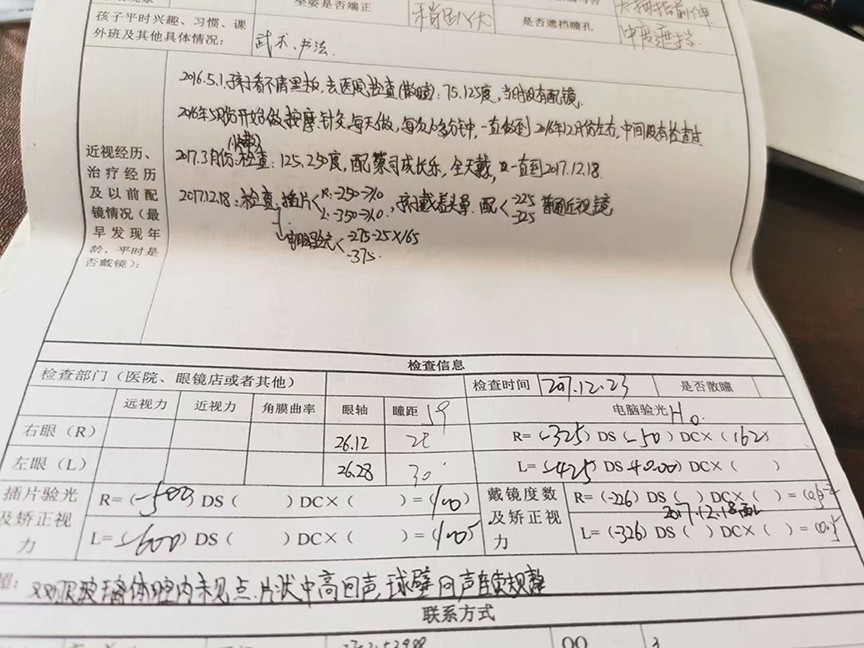 坐姿是否端正
孩子平时兴趣、习惯、课外班及其他具体情况:
武术、书法
是否遮挡瞳孔
中度遮挡
近视经历、治疗经历及以前配镜情况(最早发现年龄,平时是否戴镜):
2016.5.1,孩子看不清黑板,去医院检查(散瞳):75.125度,当时没有配镜.
2016年5月份开始做按摩.针灸,每天做,每次 多分钟,一直做到2016年12月份左右,中间没有检查过
2017.3月份:检查:125、250度,配蒙司成长乐,全天戴,一直到2017.12.18.
2017.12.18:检查:插片<R:-250→1.0 L:-350→1.0,孩子戴着头晕.配<-225 -325 普通近视镜
电脑验光<-275-25×165 -375.
检查信息
检查部门(医院、眼镜店或者其他)
检查时间 2017.12.23 是否散瞳
远视力 近视力 角膜曲率 眼轴 瞳距 59 电脑验光
右眼(R) 26.12 R=(-325)DS(-50)DC×(162)
左眼(L) 26.28 30 L=(-425)DS(+0.00)DC×( )
插片验光及矫正视力
R=(-500)DS( )DC×( )=(1.0)
L=(-600)DS( )DC×( )=( )
戴镜度数及矫正视力
R=(-226)DS( )DC×( )=( )
2017.12.18配
L=(-326)DS( )DC×( )=(0.5)
超:双眼玻璃体腔内未见点.片状中高回声,球壁回声连续规整
联系方式
QQ